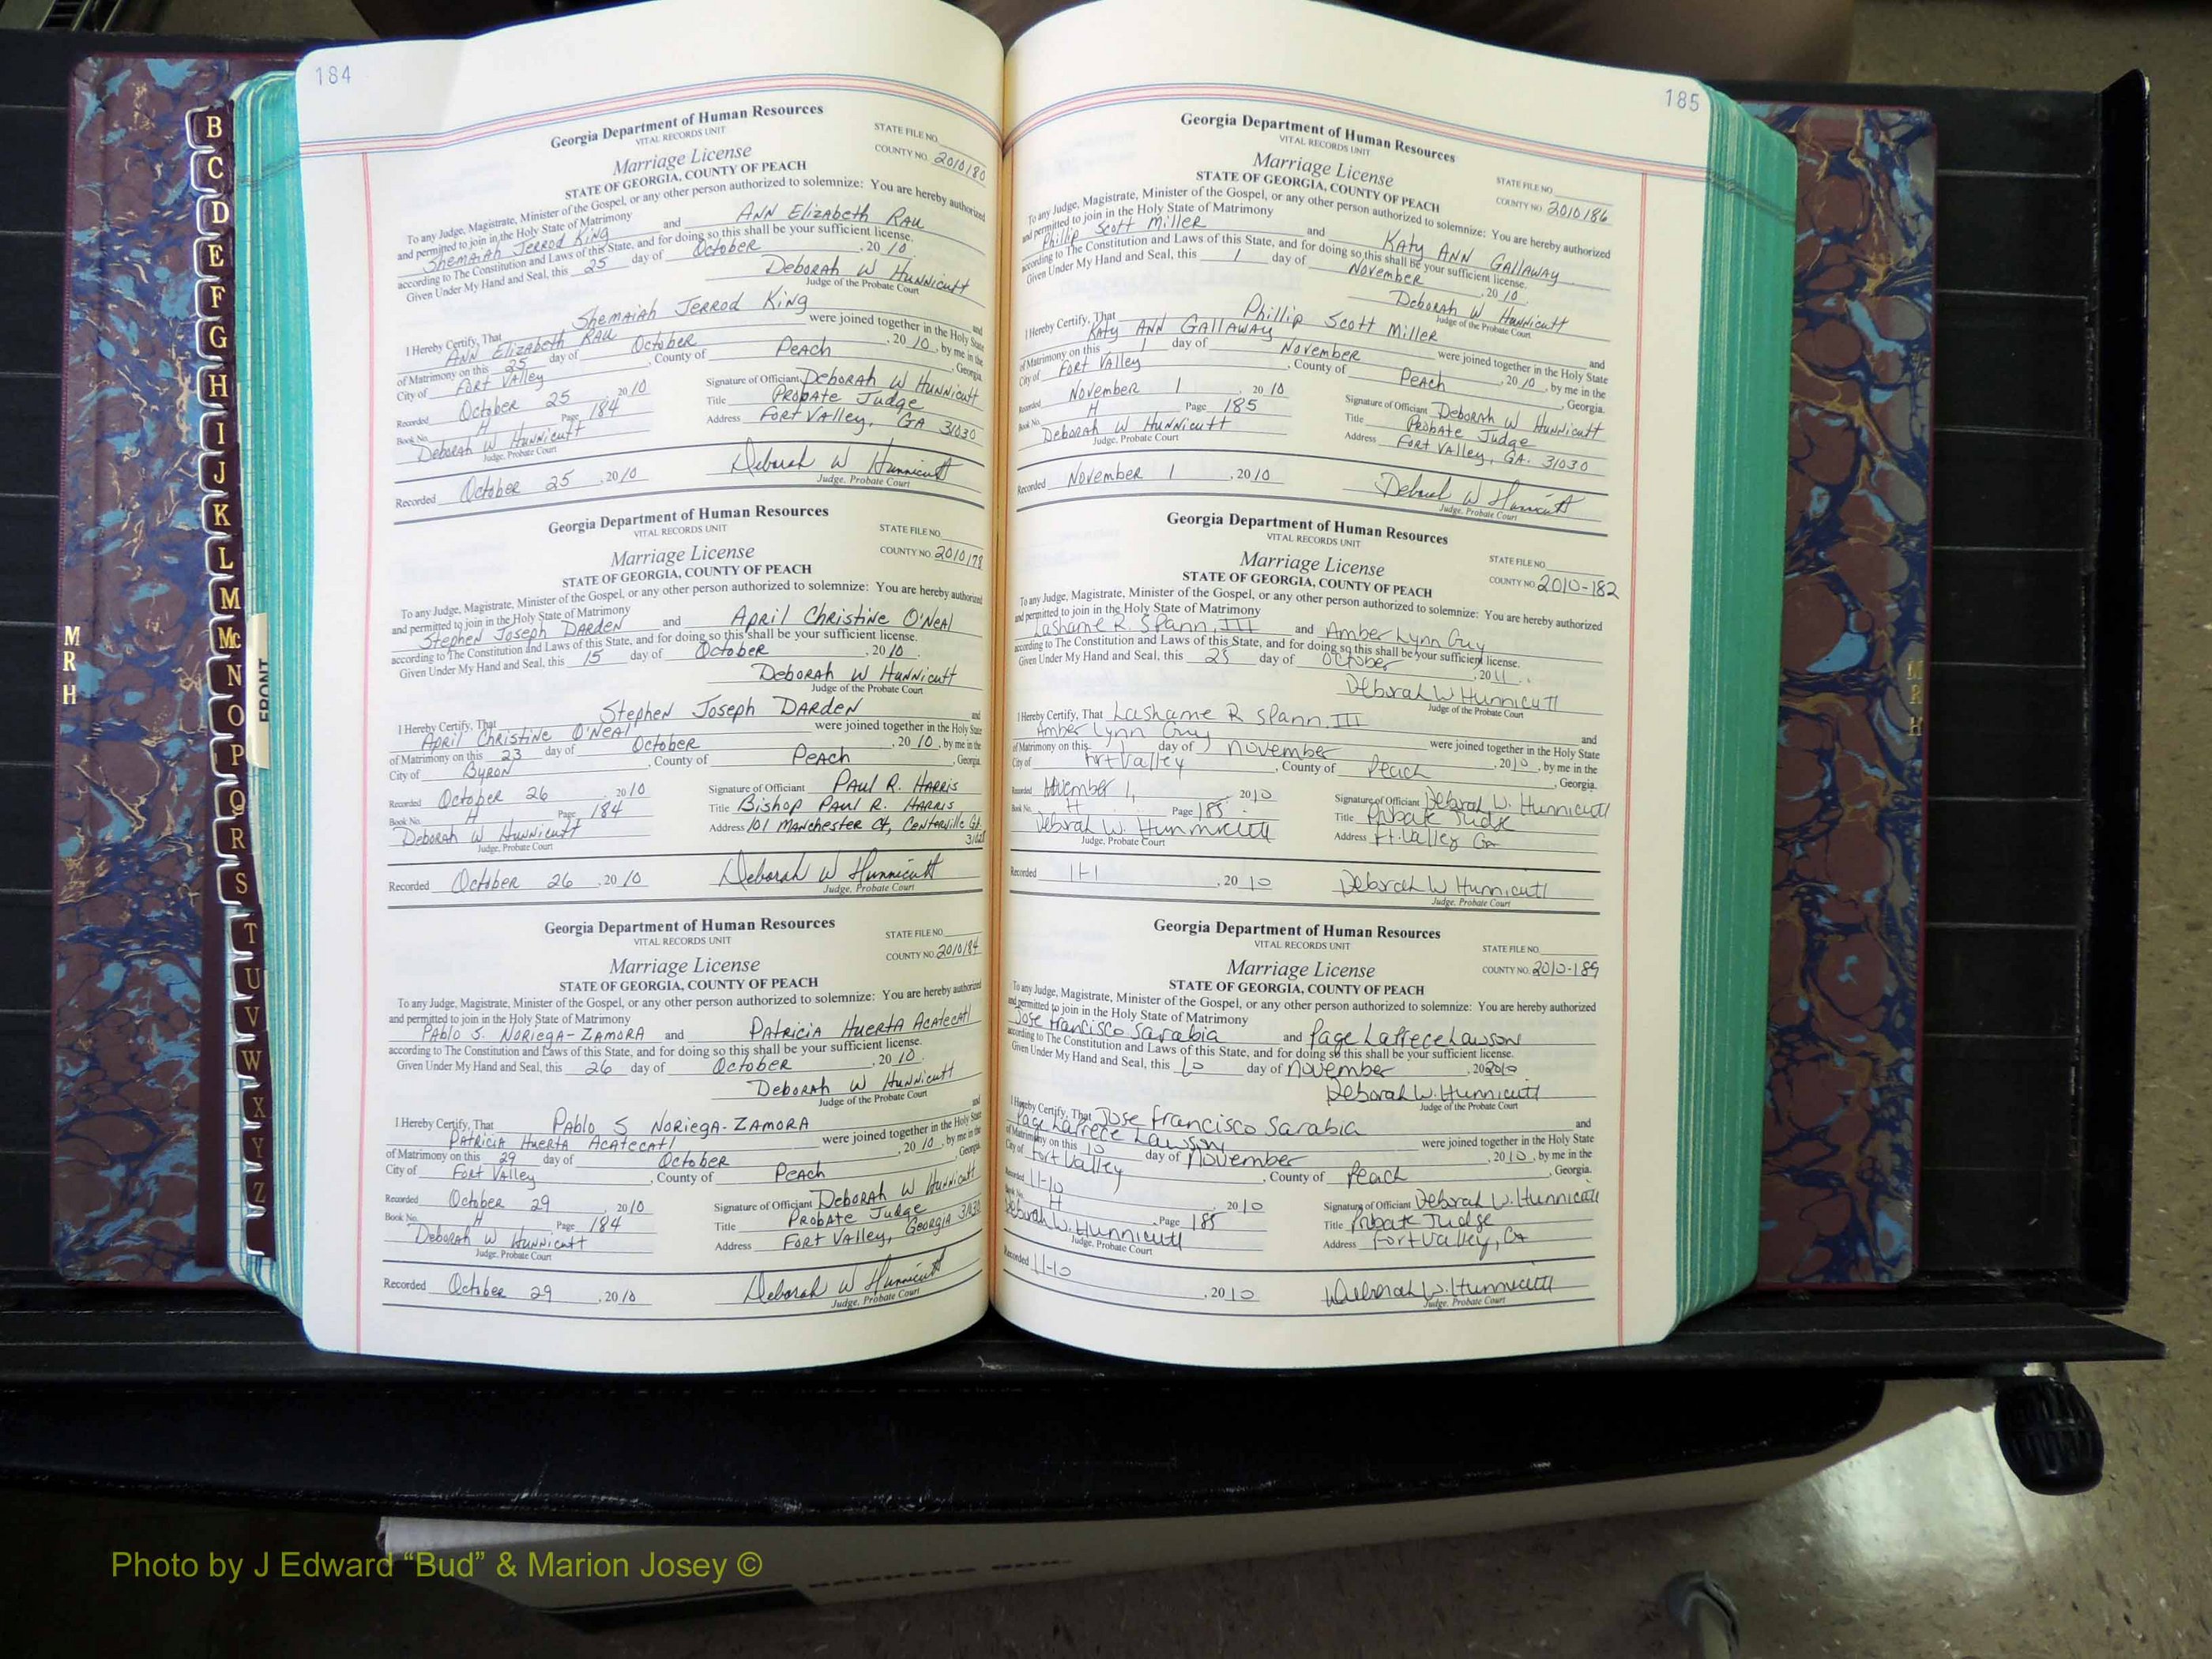 184
Georgia Department of Human Resources
VITAL RECORDS UNIT
STATE FILE NO.
Marriage License
COUNTY NO. 2010180
STATE OF GEORGIA, COUNTY OF PEACH
To any Judge, Magistrate, Minister of the Gospel, or any other person authorized to solemnize: You are hereby authorized
and permitted to join in the Holy State of Matrimony
Shemaiah Jerrod King and Ann Elizabeth Rau
according to The Constitution and Laws of this State, and for doing so this shall be your sufficient license.
Given Under My Hand and Seal, this 25 day of October , 20 10
Deborah W Hunnicutt
Judge of the Probate Court
I Hereby Certify, That Shemaiah Jerrod King and
Ann Elizabeth Rau were joined together in the Holy State
of Matrimony on this 25 day of October , 20 10 , by me in the
City of Fort Valley , County of Peach , Georgia.
Recorded October 25 20 10 Signature of Officiant Deborah W Hunnicutt
Book No. H Page 184 Title Probate Judge
Deborah W Hunnicutt Address Fort Valley, GA 31030
Judge, Probate Court
Recorded October 25 , 20 10 Deborah W Hunnicutt
Judge, Probate Court
Georgia Department of Human Resources
VITAL RECORDS UNIT
STATE FILE NO.
Marriage License
COUNTY NO. 2010178
STATE OF GEORGIA, COUNTY OF PEACH
To any Judge, Magistrate, Minister of the Gospel, or any other person authorized to solemnize: You are hereby authorized
and permitted to join in the Holy State of Matrimony
Stephen Joseph Darden and April Christine O'Neal
according to The Constitution and Laws of this State, and for doing so this shall be your sufficient license.
Given Under My Hand and Seal, this 15 day of October , 20 10
Deborah W Hunnicutt
Judge of the Probate Court
I Hereby Certify, That Stephen Joseph Darden and
April Christine O'Neal were joined together in the Holy State
of Matrimony on this 23 day of October , 20 10 , by me in the
City of Byron , County of Peach , Georgia.
Recorded October 26 20 10 Signature of Officiant Paul R. Harris
Book No. H Page 184 Title Bishop Paul R. Harris
Deborah W Hunnicutt Address 101 Manchester Ct, Centerville Ga.
Judge, Probate Court
Recorded October 26 , 20 10 Deborah W Hunnicutt
Judge, Probate Court
Georgia Department of Human Resources
VITAL RECORDS UNIT
STATE FILE NO.
Marriage License
COUNTY NO. 2010184
STATE OF GEORGIA, COUNTY OF PEACH
To any Judge, Magistrate, Minister of the Gospel, or any other person authorized to solemnize: You are hereby authorized
and permitted to join in the Holy State of Matrimony
Pablo S. Noriega-Zamora and Patricia Huerta Acatecatl
according to The Constitution and Laws of this State, and for doing so this shall be your sufficient license.
Given Under My Hand and Seal, this 26 day of October , 20 10
Deborah W Hunnicutt
Judge of the Probate Court
I Hereby Certify, That Pablo S Noriega-Zamora and
Patricia Huerta Acatecatl were joined together in the Holy State
of Matrimony on this 29 day of October , 20 10 , by me in the
City of Fort Valley , County of Peach , Georgia.
Recorded October 29 20 10 Signature of Officiant Deborah W Hunnicutt
Book No. H Page 184 Title Probate Judge
Deborah W Hunnicutt Address Fort Valley, Georgia 31030
Judge, Probate Court
Recorded October 29 , 20 10 Deborah W Hunnicutt
Judge, Probate Court
185
Georgia Department of Human Resources
VITAL RECORDS UNIT
STATE FILE NO.
Marriage License
COUNTY NO. 2010186
STATE OF GEORGIA, COUNTY OF PEACH
To any Judge, Magistrate, Minister of the Gospel, or any other person authorized to solemnize: You are hereby authorized
and permitted to join in the Holy State of Matrimony
Phillip Scott Miller and Katy Ann Gallaway
according to The Constitution and Laws of this State, and for doing so this shall be your sufficient license.
Given Under My Hand and Seal, this 1 day of November , 20 10
Deborah W Hunnicutt
Judge of the Probate Court
I Hereby Certify, That Phillip Scott Miller and
Katy Ann Gallaway were joined together in the Holy State
of Matrimony on this 1 day of November , 20 10 , by me in the
City of Fort Valley , County of Peach , Georgia.
Recorded November 1 , 20 10 Signature of Officiant Deborah W Hunnicutt
Book No. H Page 185 Title Probate Judge
Deborah W Hunnicutt Address Fort Valley, GA. 31030
Judge, Probate Court
Recorded November 1 , 20 10 Deborah W Hunnicutt
Judge, Probate Court
Georgia Department of Human Resources
VITAL RECORDS UNIT
STATE FILE NO.
Marriage License
COUNTY NO. 2010-182
STATE OF GEORGIA, COUNTY OF PEACH
To any Judge, Magistrate, Minister of the Gospel, or any other person authorized to solemnize: You are hereby authorized
and permitted to join in the Holy State of Matrimony
Lashame R Spann, III and Amber Lynn Guy
according to The Constitution and Laws of this State, and for doing so this shall be your sufficient license.
Given Under My Hand and Seal, this 25 day of October , 20 11
Deborah W Hunnicutt
Judge of the Probate Court
I Hereby Certify, That Lashame R Spann, III and
Amber Lynn Guy were joined together in the Holy State
of Matrimony on this 1 day of November , 20 10 , by me in the
City of Fort Valley , County of Peach , Georgia.
Recorded November 1, 20 10 Signature of Officiant Deborah W. Hunnicutt
Book No. H Page 185 Title Probate Judge
Deborah W. Hunnicutt Address Ft. Valley Ga
Judge, Probate Court
Recorded 11-1 , 20 10 Deborah W Hunnicutt
Judge, Probate Court
Georgia Department of Human Resources
VITAL RECORDS UNIT
STATE FILE NO.
Marriage License
COUNTY NO. 2010-189
STATE OF GEORGIA, COUNTY OF PEACH
To any Judge, Magistrate, Minister of the Gospel, or any other person authorized to solemnize: You are hereby authorized
and permitted to join in the Holy State of Matrimony
Jose Francisco Sarabia and Page Latrece Lawson
according to The Constitution and Laws of this State, and for doing so this shall be your sufficient license.
Given Under My Hand and Seal, this 10 day of November , 202010
Deborah W. Hunnicutt
Judge of the Probate Court
I Hereby Certify, That Jose Francisco Sarabia and
Page Latrece Lawson were joined together in the Holy State
of Matrimony on this 10 day of November , 20 10 , by me in the
City of Fort Valley , County of Peach , Georgia.
Recorded 11-10 20 10 Signature of Officiant Deborah W. Hunnicutt
Book No. H Page 185 Title Probate Judge
Deborah W. Hunnicutt Address Fort Valley, Ga
Judge, Probate Court
Recorded 11-10 , 20 10 Deborah W. Hunnicutt
Judge, Probate Court
B
C
D
E
F
G
H
I
J
K
L
M
Mc
N
O
P
Q
R
S
T
U
V
W
X
Y
Z
FRONT
M
R
H
M
R
H
Photo by J Edward “Bud” & Marion Josey ©